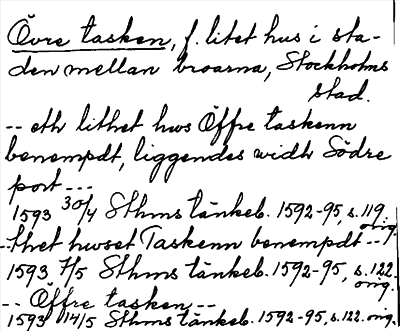 Övre tasken, f. litet hus i sta-
den mellan broarna, Stockholms
stad.
-- eth lithet hws Öffre taskenn
benempdt, liggendes widh Södre
port ---
1593 30/4 Sthms tänkeb. 1592-95, s. 119.
orig.
-- thet hwset Taskenn benempdt --
1593 7/5 Sthms tänkeb. 1592-95, s. 122.
orig.
-- Öffre tasken --
1593 14/5 Sthms tänkeb. 1592-95, s. 122. orig.